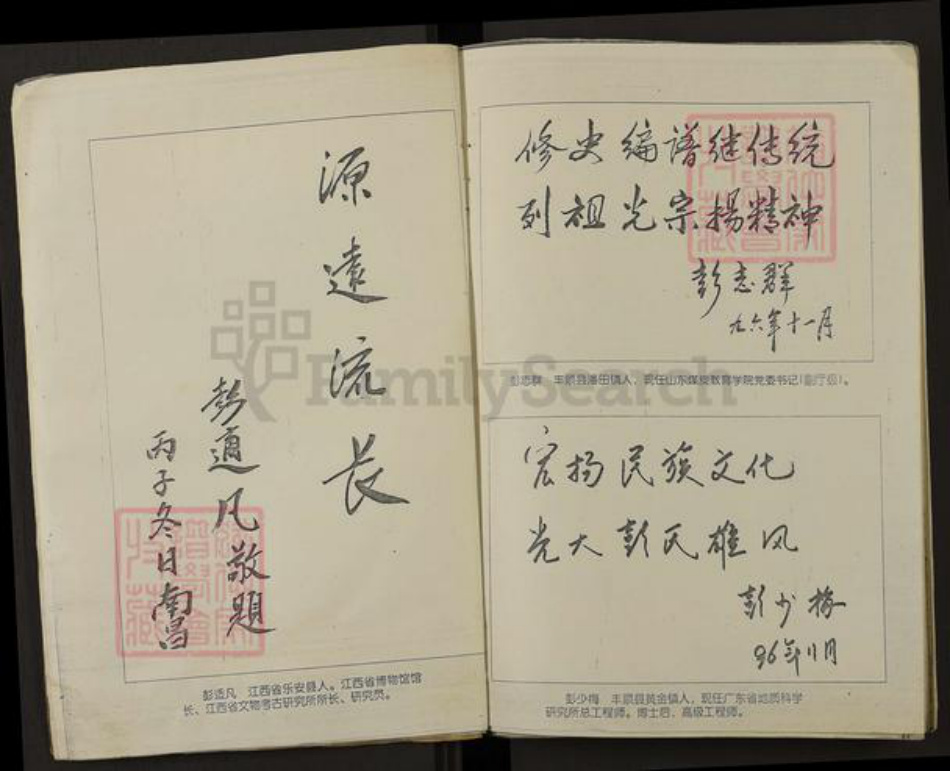 源遠流长
彭適凡敬題
丙子冬日南昌
彭适凡 江西省乐安县人。江西省博物馆馆
长、江西省文物考古研究所所长、研究员。
修史编谱继传统
列祖光宗揚精神
彭志群
九六年十一月
彭志群 丰顺县潘田镇人，现任山东煤炭教育学院党委书记(副厅级)。
宏扬民族文化
光大彭氏雄风
彭少梅
96年11月
彭少梅 丰顺县黄金镇人，现任广东省地质科学
研究所总工程师。博士后，高级工程师。
FamilySearch